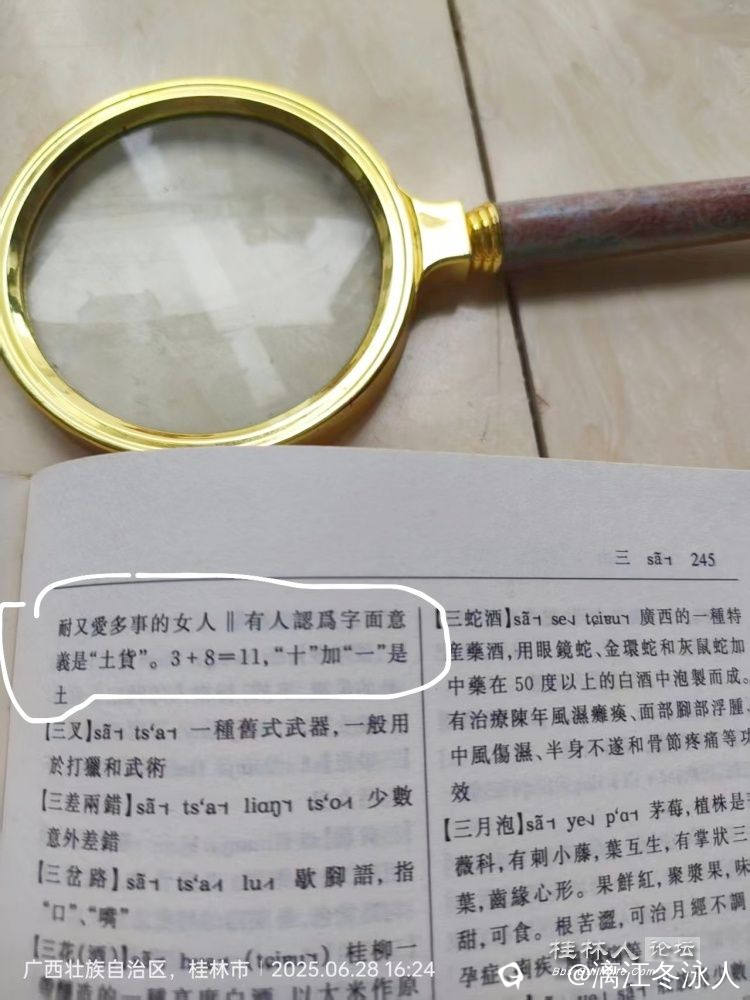 三 sãꜗ 245
耐又愛多事的女人‖有人認爲字面意
義是“土貨”。3+8=11,“十”加“一”是
土
【三叉】sã˧ ts‘a˧ 一種舊式武器,一般用
於打獵和武術
【三差兩錯】sã˧ ts‘a˧ liɑŋ˥ ts‘o 少數
意外差錯
【三岔路】sã˧ ts‘a lu 歇腳語,指
“口”、“嘴”
【三花(酒)】 桂柳一
以大米作原
【三蛇酒】sã˧ se tɕiəu˥ 廣西的一種特
産藥酒,用眼鏡蛇、金環蛇和灰鼠蛇加
中藥在50度以上的白酒中泡製而成。
有治療陳年風濕癱瘓、面部腳部浮腫、
中風傷濕、半身不遂和骨節疼痛等功
效
【三月泡】sã˧ ye p‘ɑ˧ 茅莓,植株是
薇科,有刺小藤,葉互生,有掌狀三
葉,齒緣心形。果鮮紅,聚漿果,味
甜,可食。根苦澀,可治月經不調
孕症
广西壮族自治区,桂林市 | 2025.06.28 16:24
桂林人论坛
@漓江冬泳人